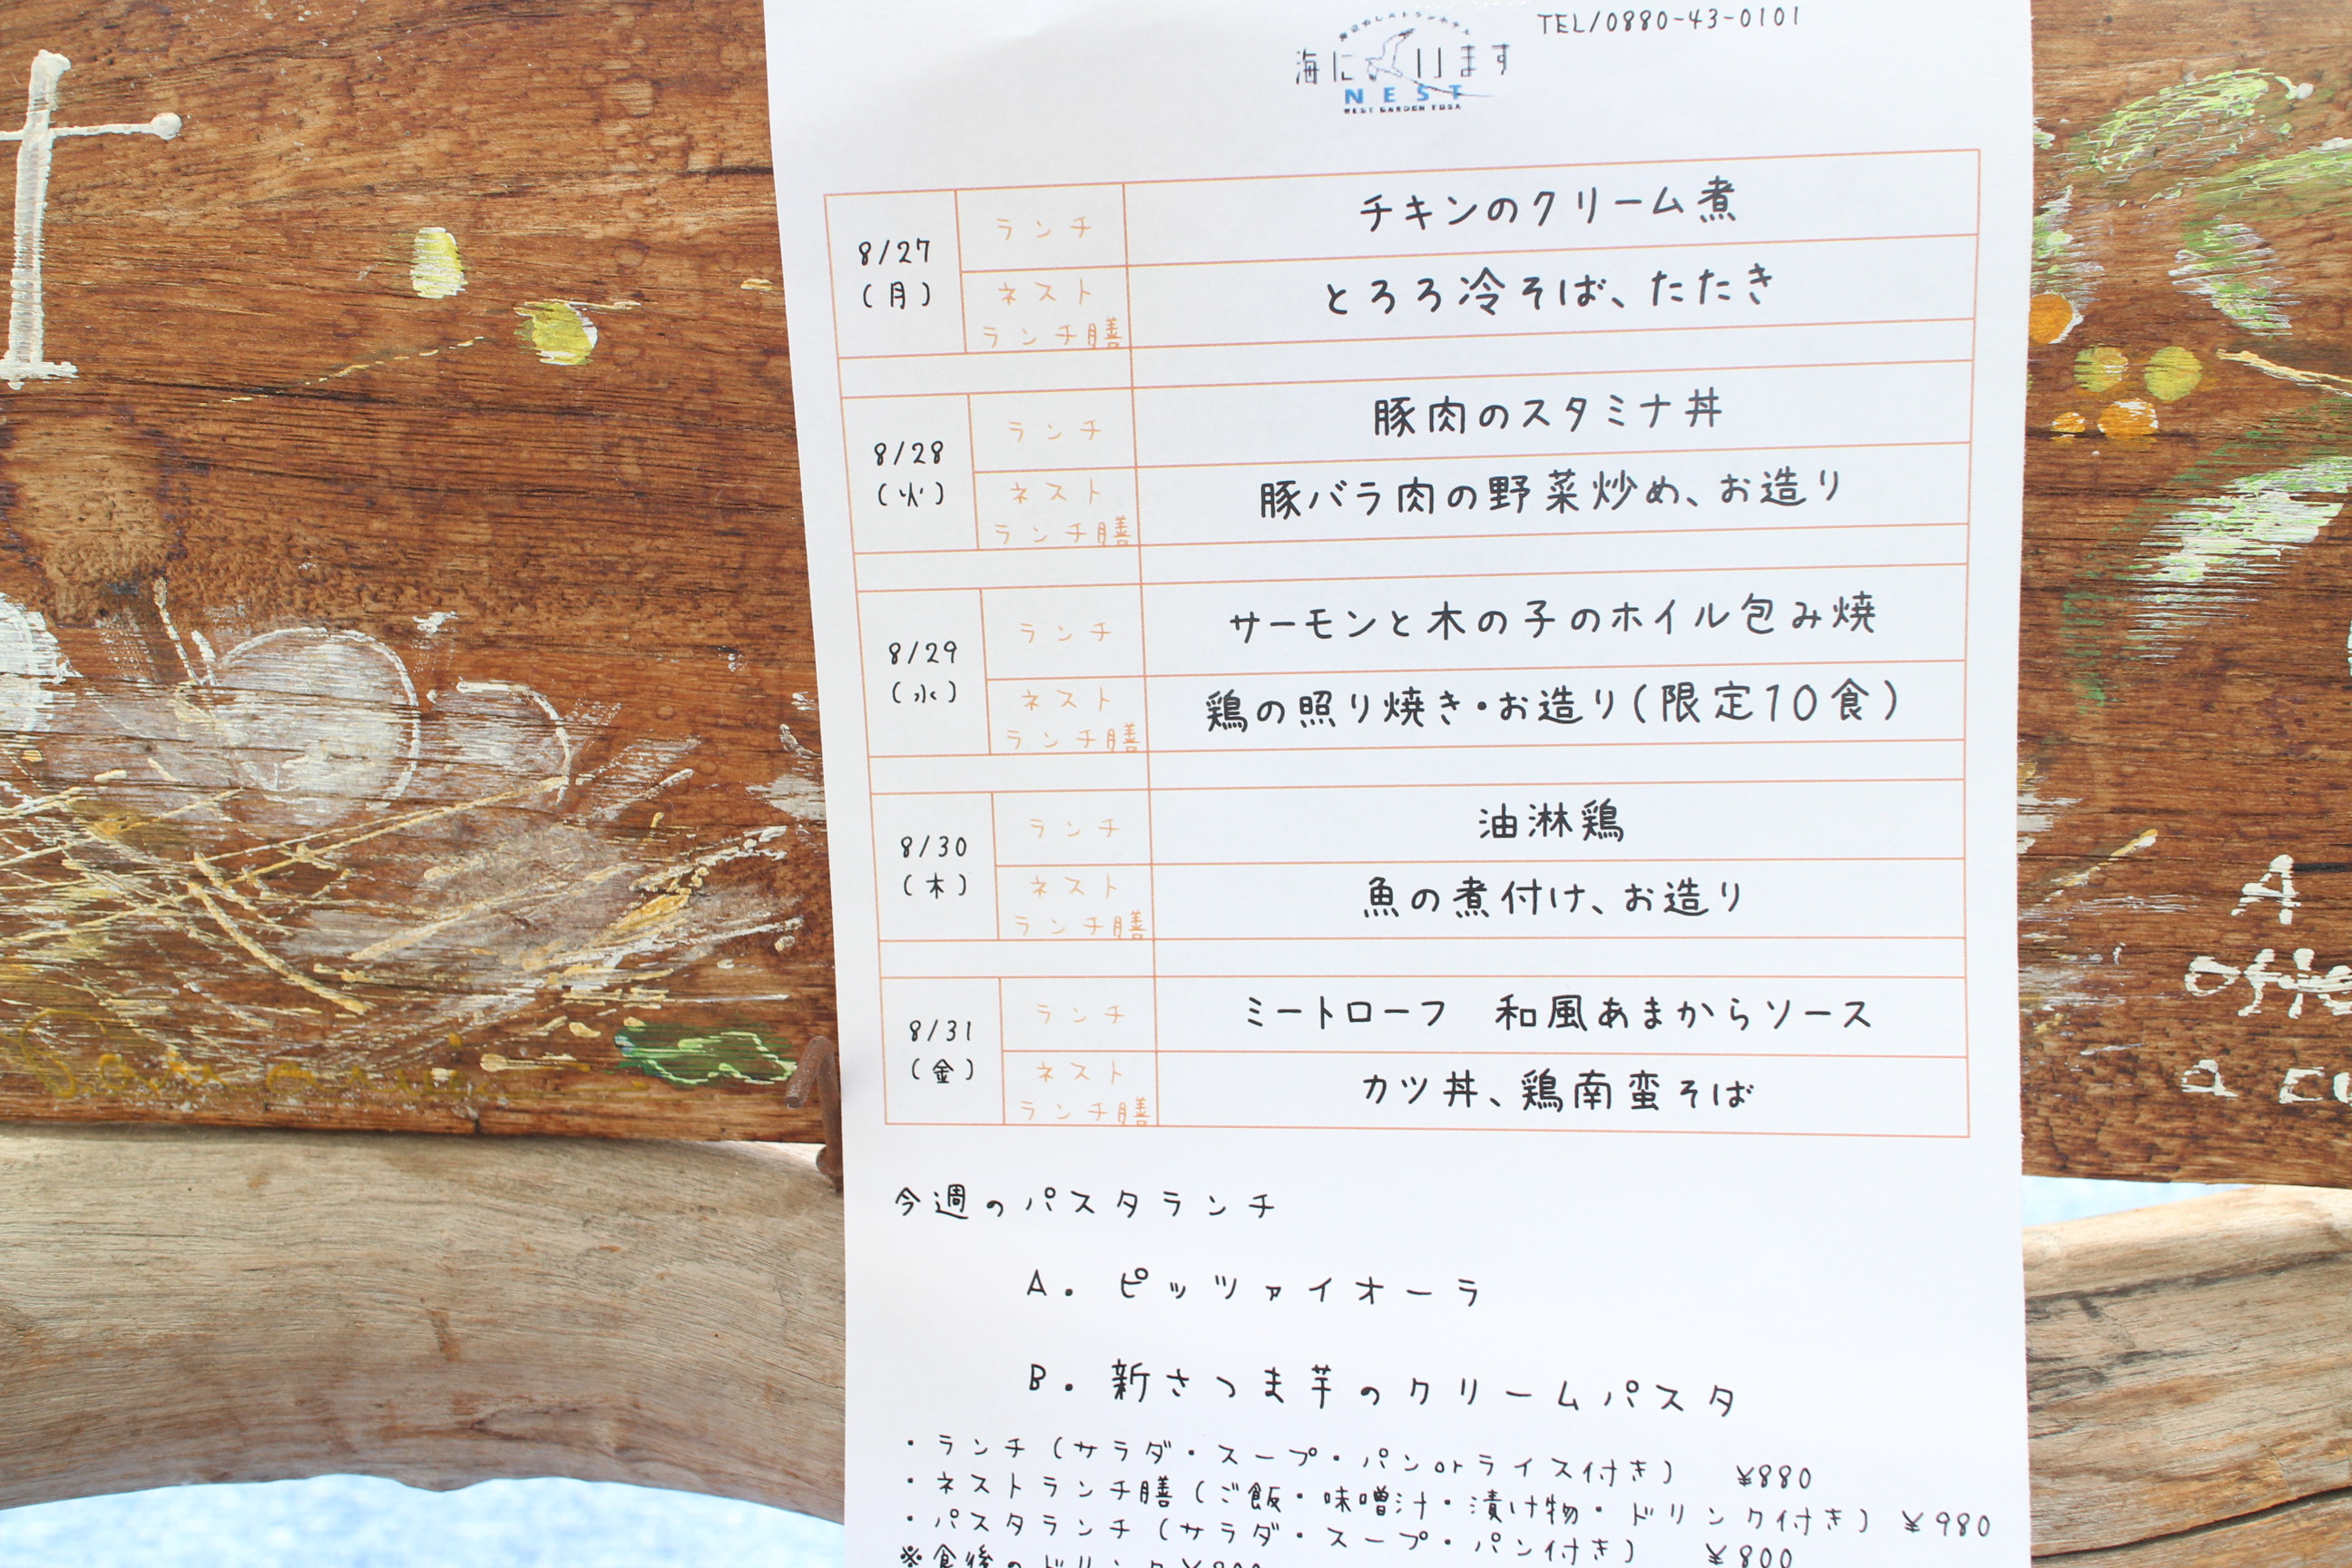 TEL/0880-43-0101
海に います
NEST
WEST GARDEN TOSA
8/27
(月)
ランチ
チキンのクリーム煮
ネスト
ランチ膳
とろろ冷そば、たたき
8/28
(火)
ランチ
豚肉のスタミナ丼
ネスト
ランチ膳
豚バラ肉の野菜炒め、お造り
8/29
(水)
ランチ
サーモンと木の子のホイル包み焼
ネスト
ランチ膳
鶏の照り焼き・お造り(限定10食)
8/30
(木)
ランチ
油淋鶏
ネスト
ランチ膳
魚の煮付け、お造り
8/31
(金)
ランチ
ミートローフ 和風あまからソース
ネスト
ランチ膳
カツ丼、鶏南蛮そば
今週のパスタランチ
A. ピッツァイオーラ
B. 新さつま芋のクリームパスタ
・ランチ(サラダ・スープ・パンorライス付き) ¥880
・ネストランチ膳(ご飯・味噌汁・漬け物・ドリンク付き) ¥980
・パスタランチ(サラダ・スープ・パン付き) ¥800
※食後のドリンク
A